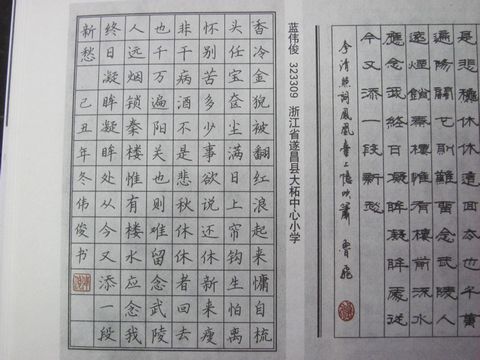 是悲秋休休這回去也千萬
遍陽關也則難留念武陵人
遠煙鎖秦樓惟有樓前流水
應念我終日凝眸凝眸處從
今又添一段新愁
李清照詞鳳凰臺上憶吹簫 魯飛
蓝伟俊 323309 浙江省遂昌县大柘中心小学
香冷金猊被翻红浪起来慵自梳
头任宝奁尘满日上帘钩生怕离
怀别苦多少事欲说还休新来瘦
非干病酒不是悲秋休休者回去
也千万遍阳关也则难留念武陵
人远烟锁秦楼惟有楼水应念我
终日凝眸凝眸处从今又添一段
新愁 己丑年冬伟俊书